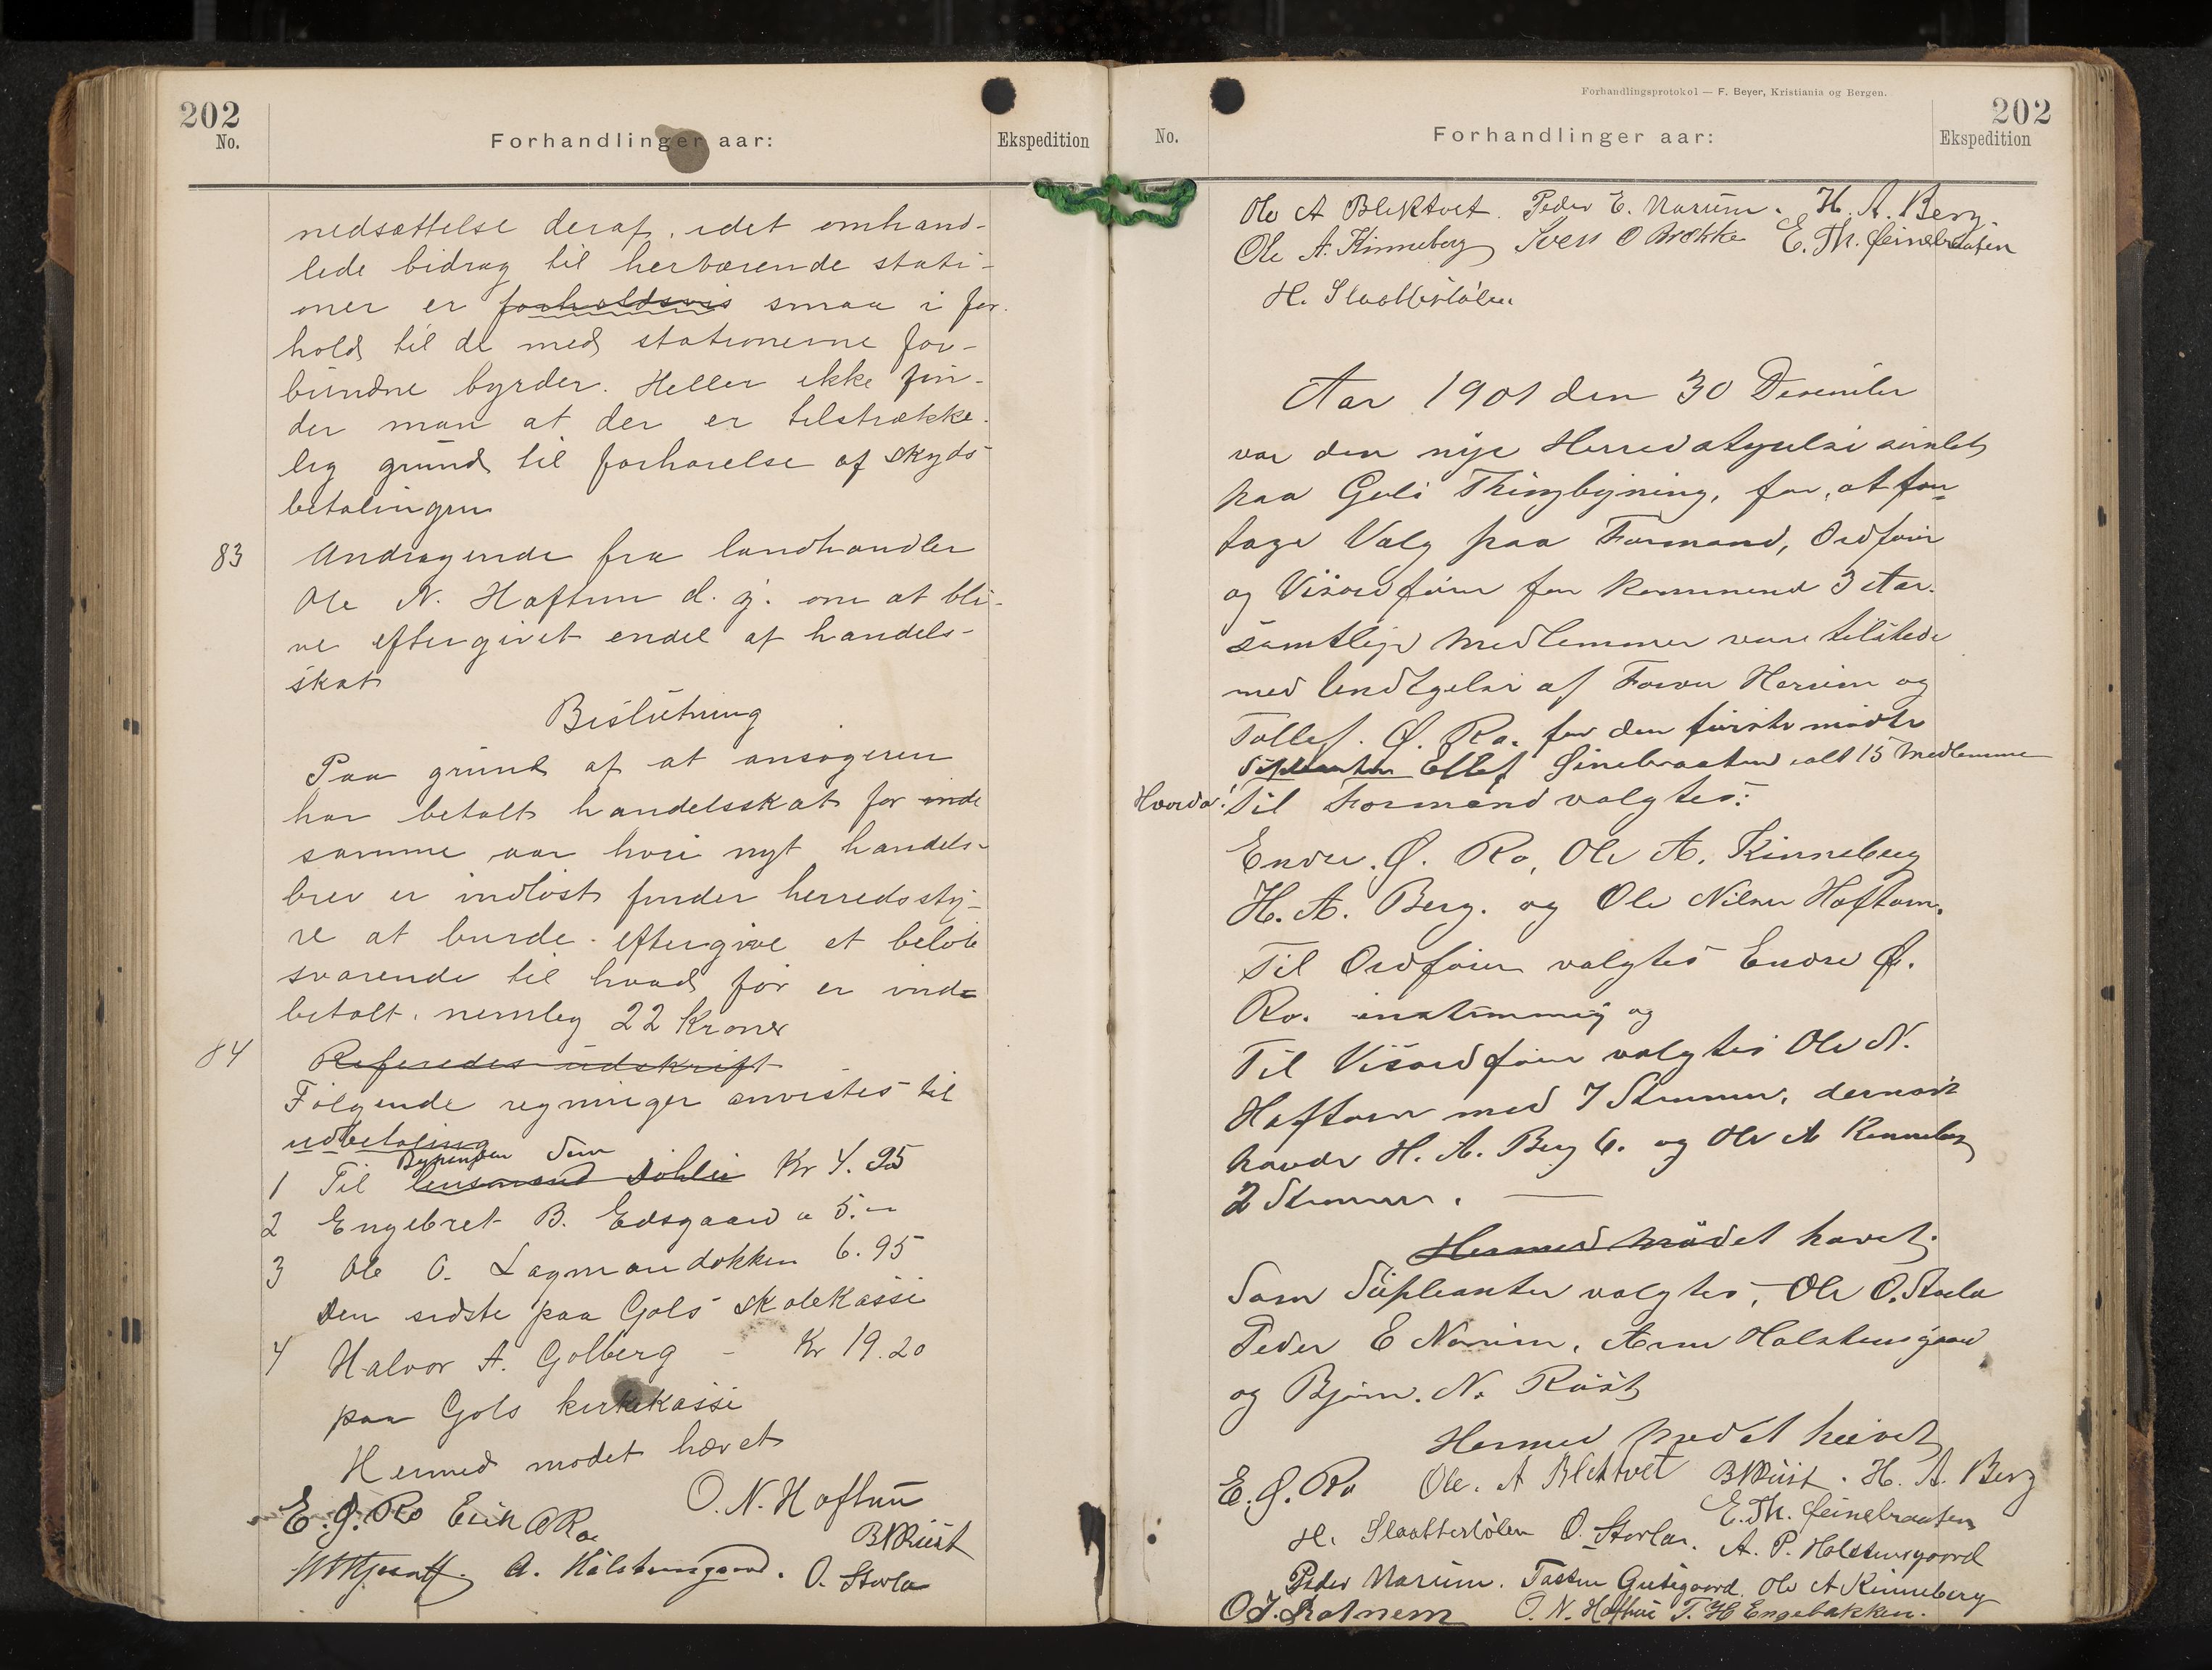 202
No.
Forhandlinger aar:
Ekspedition
nedsættelse deraf, idet omhand-
lede bidrag til herværende stati-
oner er forholdsvis smaa i for-
hold til de med stationerne for-
bundne byrder. Heller ikke fin-
der man at der er tilstrække-
lig grund til forhøielse af skyds
betalingen
83 Andragende fra landhandler
Ole N. Hoftun d. y. om at bli-
ve eftergivet endel af handels-
skat
Beslutning
Paa grund af at ansøgeren
har betalt handelsskat for inde
samme aar hvori nyt handels-
brev er indløst finder herredssty-
re at burde eftergive et beløb
svarende til hvad før er inde
betalt, nemlig 22 kroner
84 Referedes udskrift
Følgende regninger anvistes til
udbetaling
1 Til lensmand Døhlie Kr 4.95
2 Engebret B. Eidsgaard " 5.–
3 Ole O. Lagmandokken 6.95
Den sidste paa Gols skolekasse
4 Halvor A. Golberg – Kr 19.20
paa Gols kirkekasse
Hermed mødet hævet
E. Ø. Ro Eirik O Ro O. N. Hoftun
BNRust
A. Halstensgaard. O. Storla
Forhandlingsprotokol — F. Beyer, Kristiania og Bergen.
202
No.
Forhandlinger aar:
Ekspedition
Ole A Blektvet. Peder E. Narum. H. A. Berg.
Ole A. Kinneberg Svein O Brekke E. Th. Feinebraaten
H. Slaattestølen
Aar 1901 den 30 December
var den nye Herredstyrelse samlet
paa Gols Thingbygning, for at for-
tage Valg paa Formænd, Ordfører
og Viseordfører for kommend 3 Aar.
samtlige Medlemmer vare tilstede
med undtgelse af Herum og
Tollef. Ø. Ro. for den første mødte
Suplenten Ellef Feinebraaten ialt 15 Medlemmer
Hvorda: Til Formænd valgtes:
Endre. Ø. Ro, Ole A. Kinneberg
H. A. Berg. og Ole Nilsen Hoftun.
Til Ordfører valgtes Endre Ø.
Ro. enstemmig og
Til Viseordfører valgtes Ole N.
Hoftun med 7 Stemmer, dernæst
havde H. A. Berg 6. og Ole A Kinneberg
2 Stemmer.
Hermed mødet hævet.
Som Supleanter valgtes, Ole O. Storla
Peder E Narum, Arne Halstensgaard
og Bjørn. N. Rust
Hermed mødet hævet
E. Ø. Ro Ole. A Blektvet BNRust. H. A. Berg
H. Slaattestølen O. Storla. E. Th. Feinebraaten
A. P. Halstensgaard
Peder Narum. Tosten Gutegaard. Ole A Kinneberg
O. N. Hoftun T. H Engebakken.